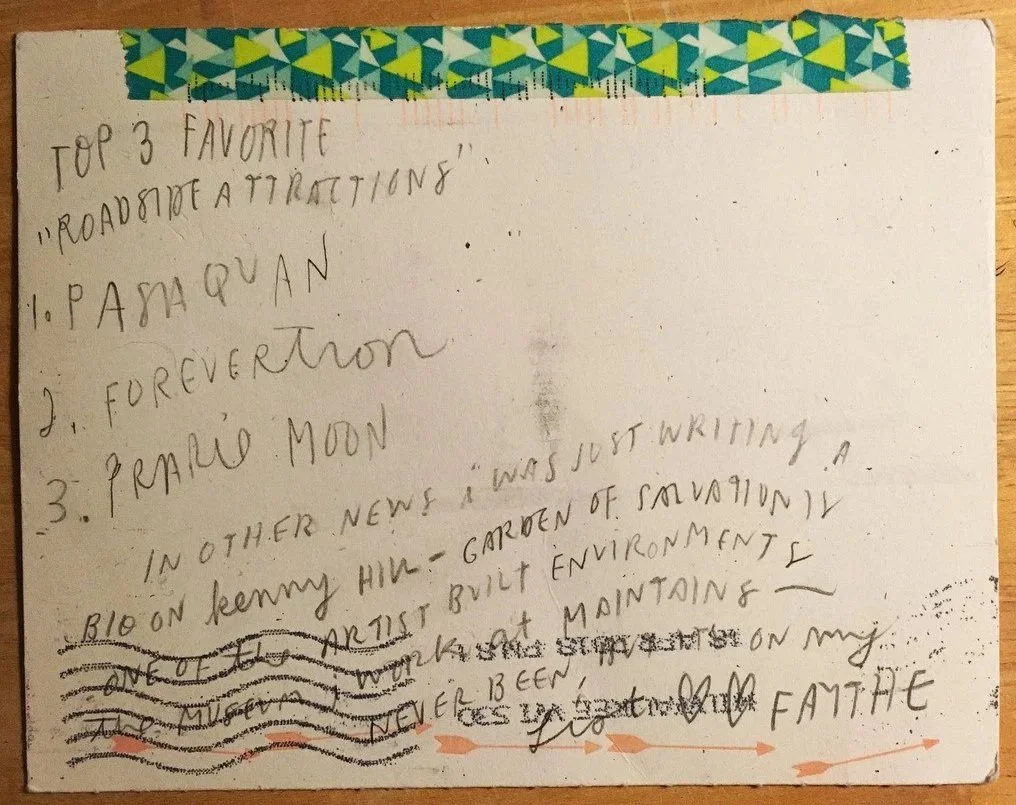 TOP 3 FAVORITE
"ROADSIDE ATTRACTIONS"
1. PASAQUAN
2. FOREVERTRON
3. PRARIE MOON
IN OTHER NEWS i WAS JUST WRITING A
BIO ON kenny HILL - GARDEN OF SALVATION IS
ONE OF the ARTIST BUILT ENVIRONMENTS
the MUSEUM i WORK at MAINTAINS —
NEVER BEEN, BUT it's ON my
List ♡♡ FAYTHE
MILWAUKEE WI 530